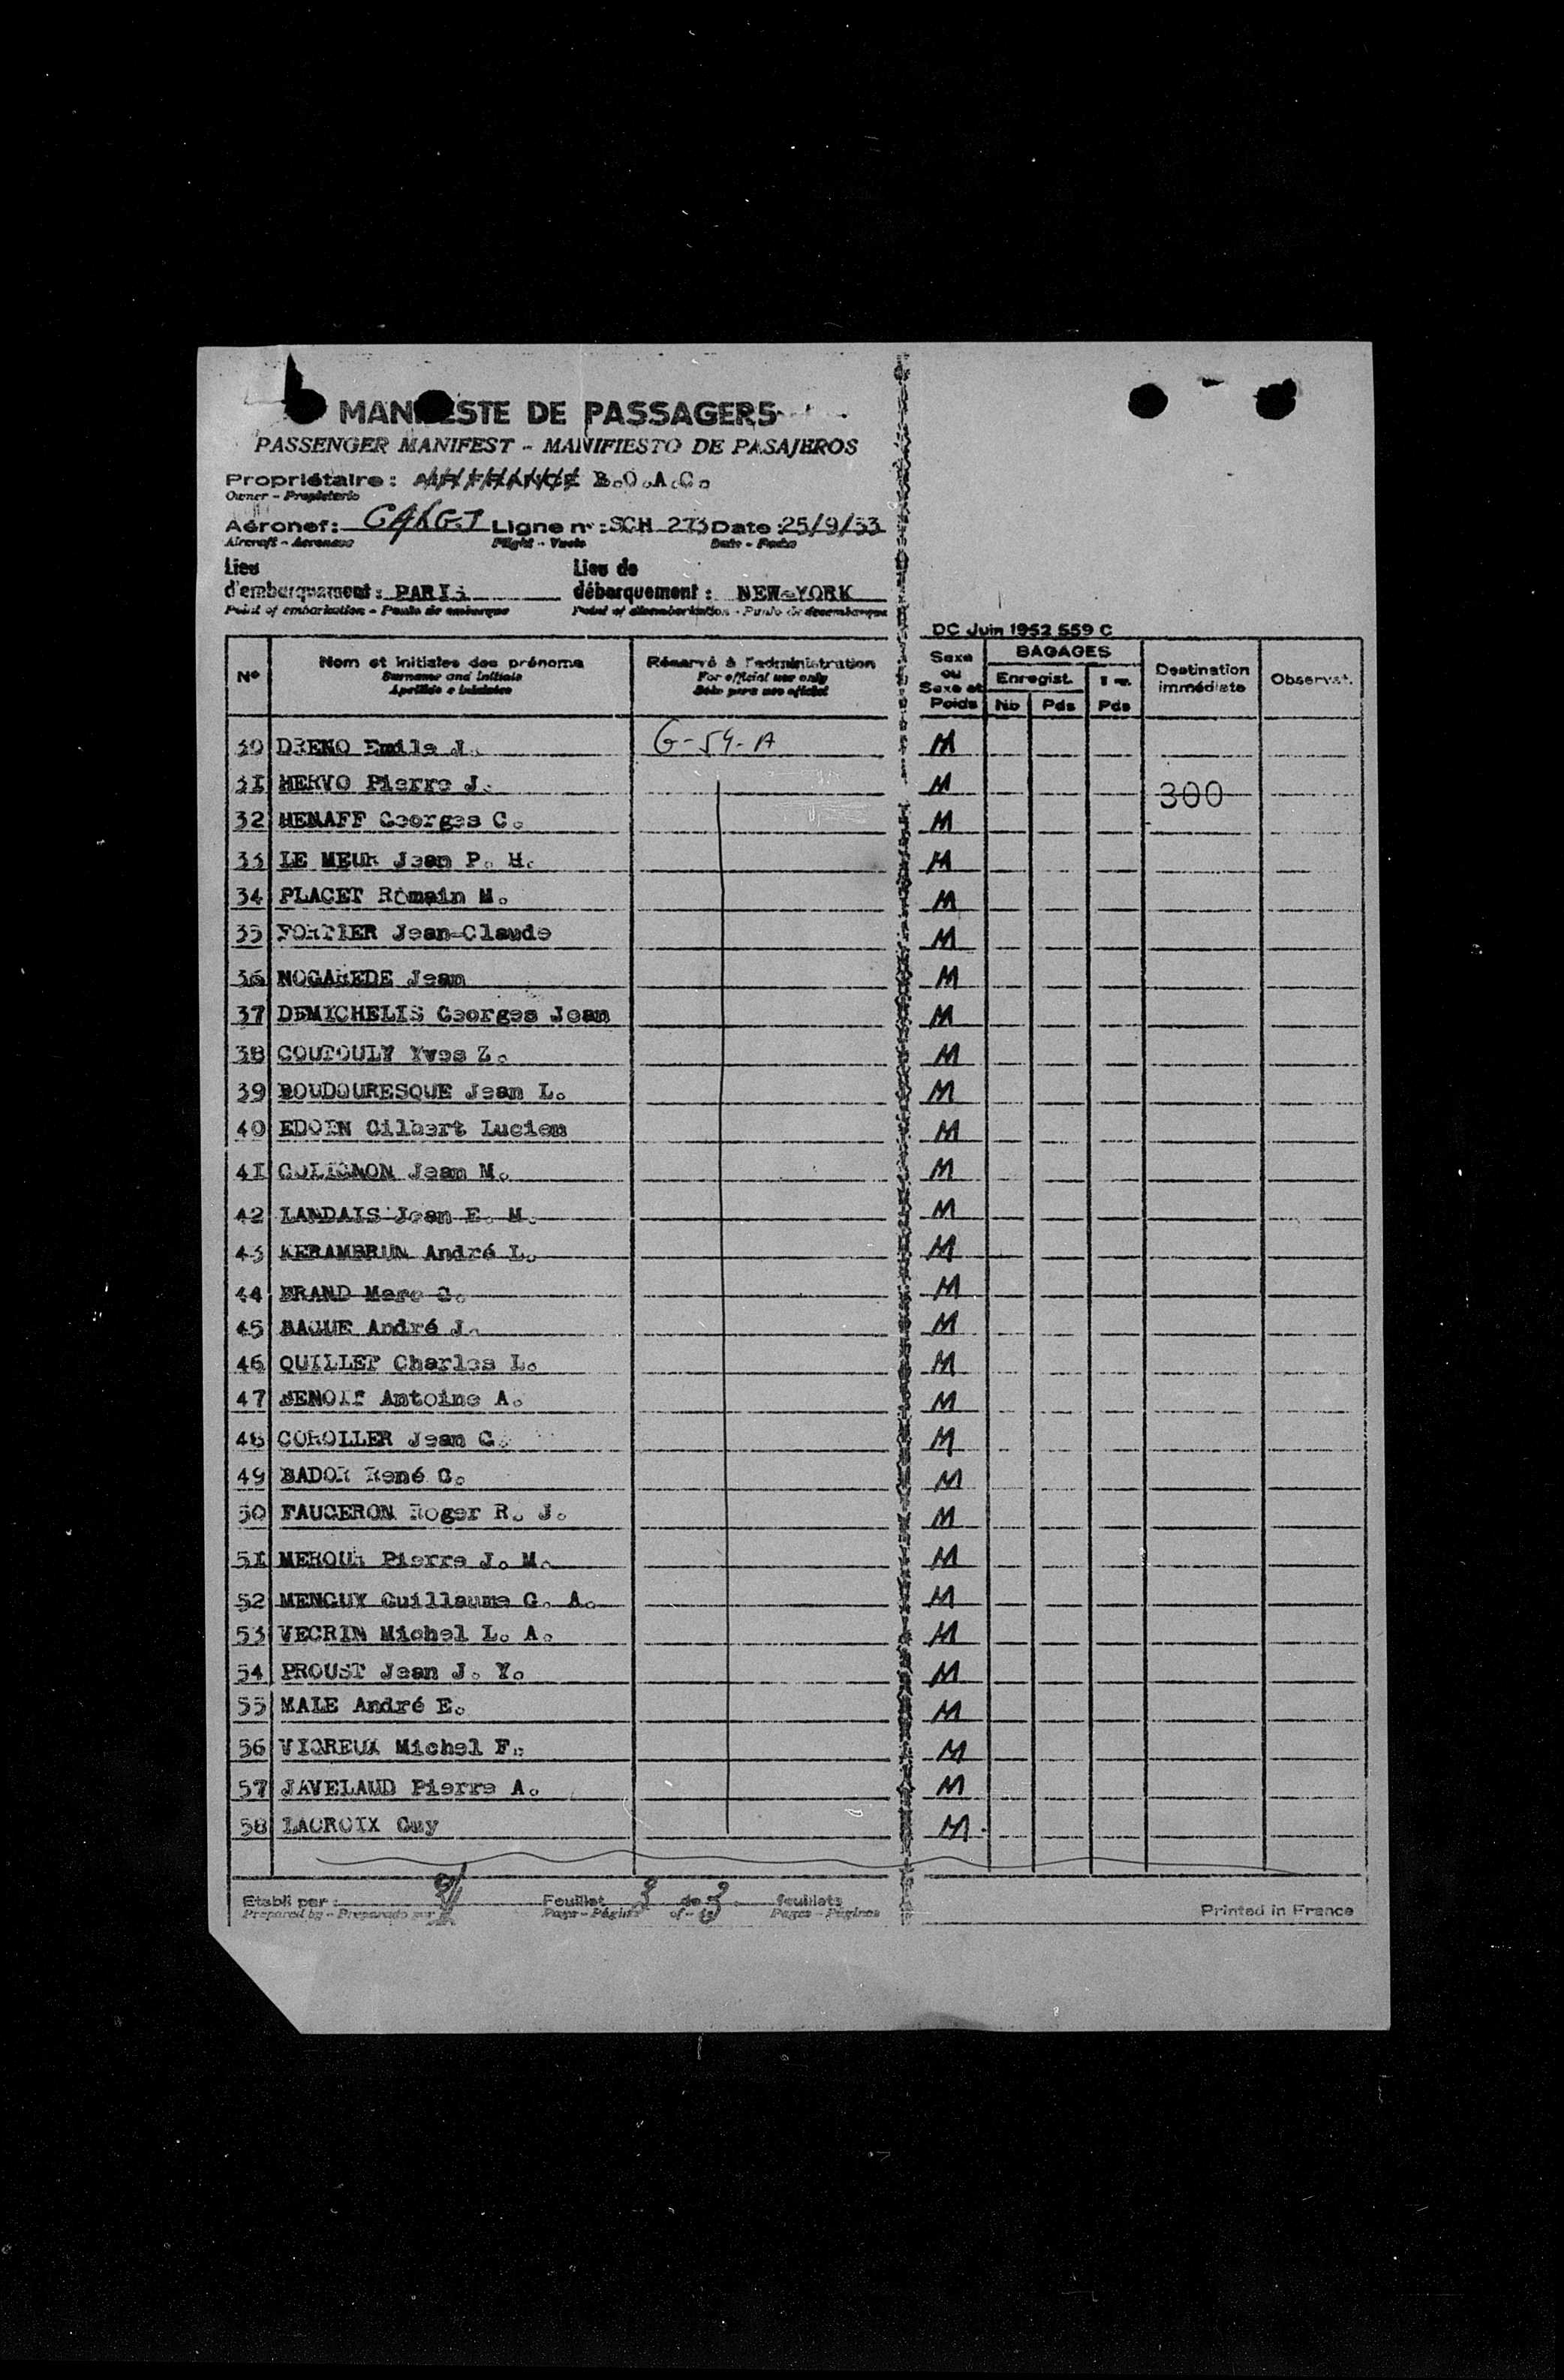 MANIFESTE DE PASSAGERS
PASSENGER MANIFEST - MANIFIESTO DE PASAJEROS
Propriétaire : AIR FRANCE B.O.A.C.
Owner - Propietario
Aéronef: Ligne n° : SCH 273 Date : 25/9/53
Aircraft - Aeronave Flight - Vuelo Date - Fecha
Lieu Lieu de
d'embarquement : PARIS débarquement : NEW-YORK
Point of embarkation - Punto de embarque Point of disembarkation - Punto de desembarque
DC Juin 1952 559 C
N° Nom et initiales des prénoms Réservé à l'administration Sexe ou Sexe et Poids BAGAGES Enregist. Nb Pds Pds Destination immédiate Observat.
Surname and initials For official use only
Apellido e iniciales Sólo para uso oficial
30 DRENO Emile J. G-54-A M
31 MERVO Pierre J. M 300
32 HENAFF Georges C. M
33 LE MEUR Jean P. H. M
34 PLACET Romain M. M
35 FORTIER Jean-Claude M
36 NOGAREDE Jean M
37 DEMICHELIS Georges Jean M
38 COUTOULY Yves Z. M
39 BOUDOURESQUE Jean L. M
40 EDOIN Gilbert Lucien M
41 COLIGNON Jean M. M
42 LANDAIS Jean E. M. M
43 KERAMBRUN André L. M
44 BRAND Marc G. M
45 BAGUE André J. M
46 QUILLET Charles L. M
47 BENOIT Antoine A. M
48 COROLLER Jean G. M
49 BADOR René G. M
50 FAUGERON Roger R. J. M
51 MEROUR Pierre J. M. M
52 MENGUY Guillaume G. A. M
53 VECRIN Michel L. A. M
54 PROUST Jean J. Y. M
55 MALE André E. M
56 VIGREUX Michel F. M
57 JAVELAUD Pierre A. M
58 LACROIX Guy M
Etabli par : Feuillet 3 de 3 feuillets
Prepared by - Preparado por Page - Página of - de Pages - Páginas
Printed in France